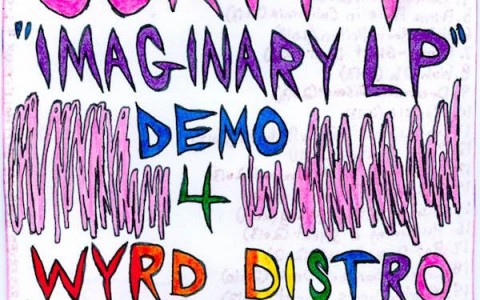 "IMAGINARY LP"
DEMO
4
WYRD DISTRO